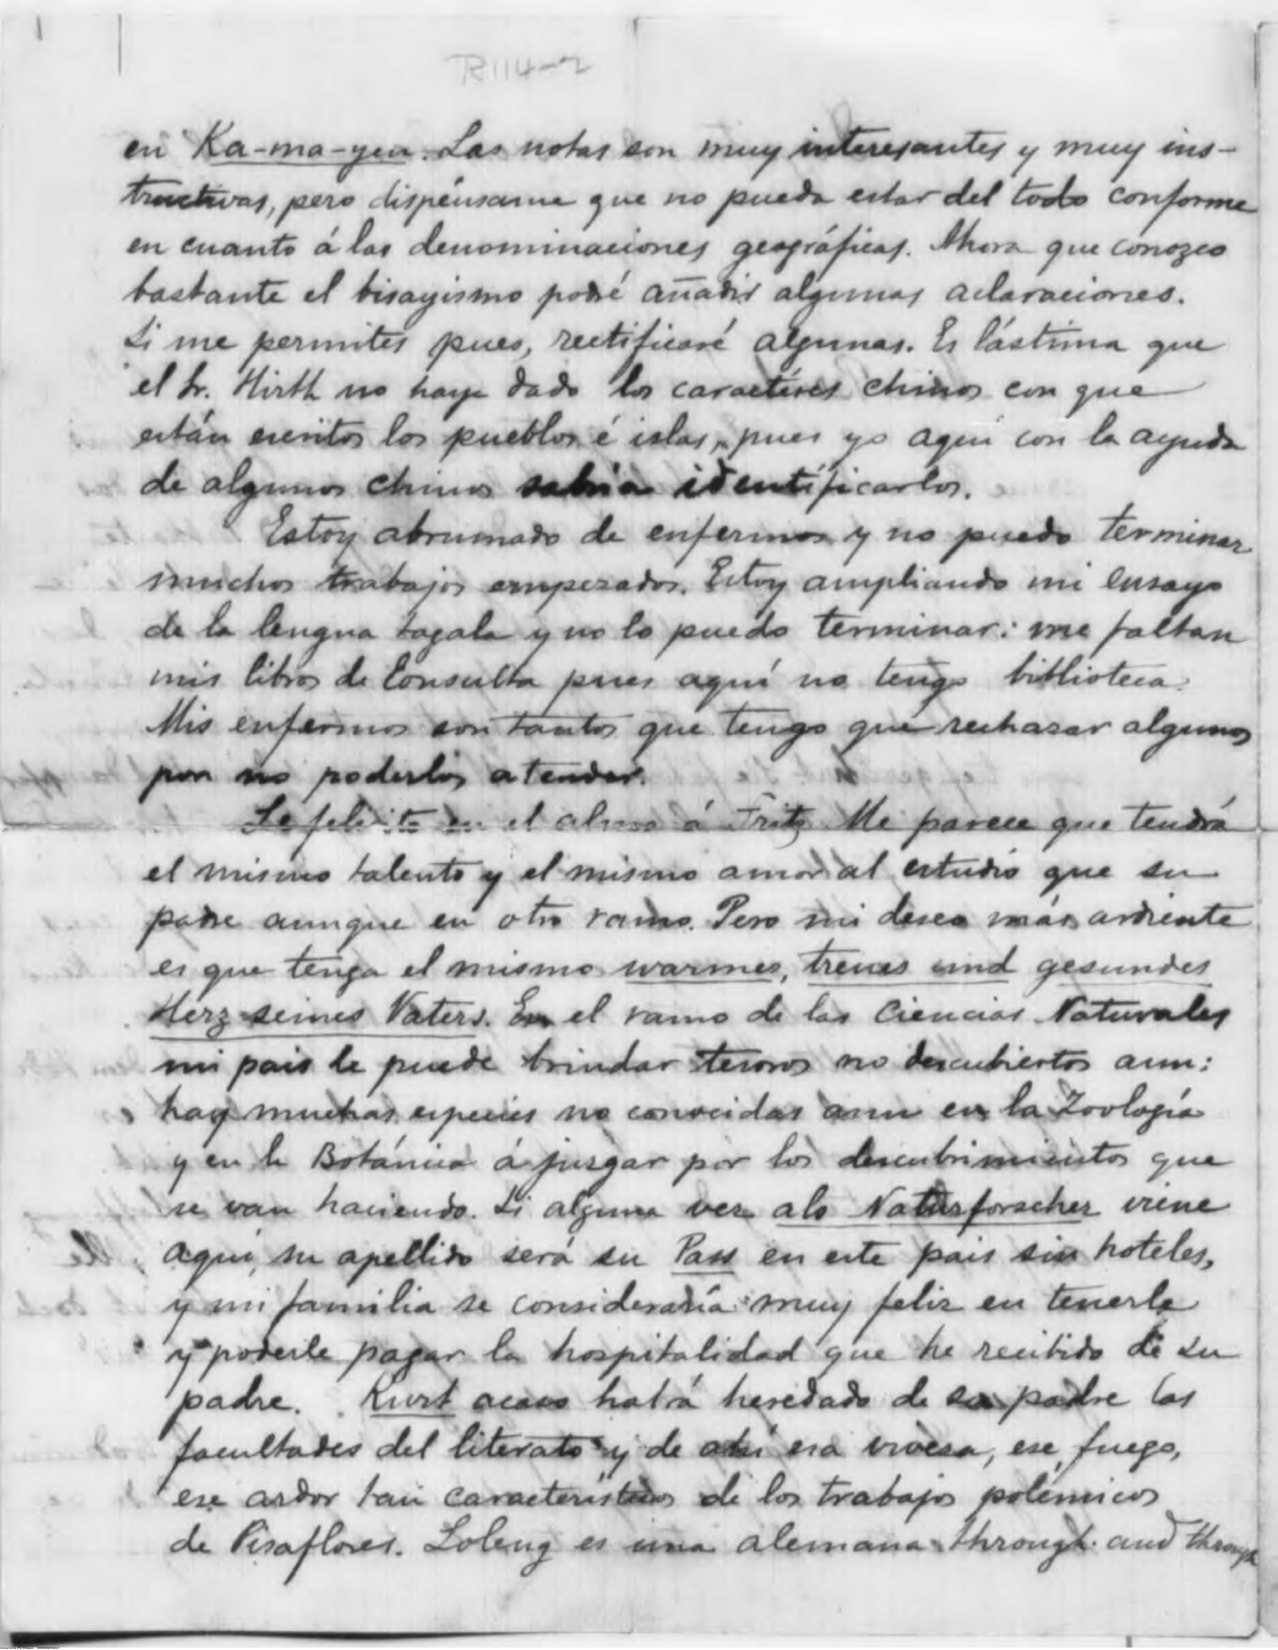 R114-2
en Ka-ma-yen. Las notas son muy interesantes y muy ins-
tructivas, pero dispénsame que no pueda estar del todo conforme
en cuanto á las denominaciones geográficas. Ahora que conozco
bastante el bisayismo podré añadir algunas aclaraciones.
Si me permites pues, rectificaré algunas. Es lástima que
el Sr. Hirth no haya dado los caractéres chinos con que
están escritos los pueblos é islas, pues yo aquí con la ayuda
de algunos chinos sabría identificarlos.
Estoy abrumado de enfermos y no puedo terminar
muchos trabajos empezados. Estoy ampliando mi ensayo
de la lengua tagala y no lo puedo terminar: me faltan
mis libros de Consulta pues aquí no tengo biblioteca.
Mis enfermos son tantos que tengo que rechazar algunos
por no poderlos atender.
Le felicito en el alma á Fritz. Me parece que tendrá
el mismo talento y el mismo amor al estudio que su
padre aunque en otro ramo. Pero mi deseo más ardiente
es que tenga el mismo warmes, treues und gesundes
Herz seines Vaters. En el ramo de las Ciencias Naturales
mi pais le puede brindar tesoros no descubiertos aun:
hay muchas especies no conocidas aun en la Zoología
y en la Botánica á juzgar por los descubrimientos que
se van haciendo. Si alguna vez als Naturforscher viene
aquí, su apellido será su Pass en este pais sin hoteles,
y mi familia se consideraría muy feliz en tenerle
y poderle pagar la hospitalidad que he recibido de su
padre. Kurt acaso habrá heredado de su padre las
facultades del literato y de ahí esa viveza, ese fuego,
ese ardor tan característicos de los trabajos polémicos
de Pisaflores. Loleng es una alemana through and through